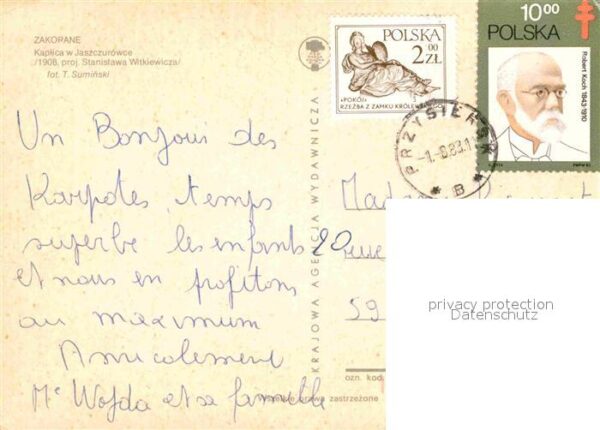 ZAKORANE
Kaplica w Jaszczurówce
/1908, proj. Stanisława Witkiewicza/
fot. T. Sumiński
Un Bonjour des
Karpates, temps
superbe les enfants
et nous en profitons
au maximum
Amicalement
Me Wojda et sa famille
KRAJOWA AGENCJA WYDAWNICZA
POLSKA
2 00
ZŁ
«POKÓJ»
RZEŹBA Z ZAMKU
10 00
POLSKA
Robert Koch 1843-1910
PRZYSIERSK
-1.-8.83.1
* B *
20 rue
59
ozn. kod.
Wszelkie prawa zastrzeżone
privacy protection
Datenschutz